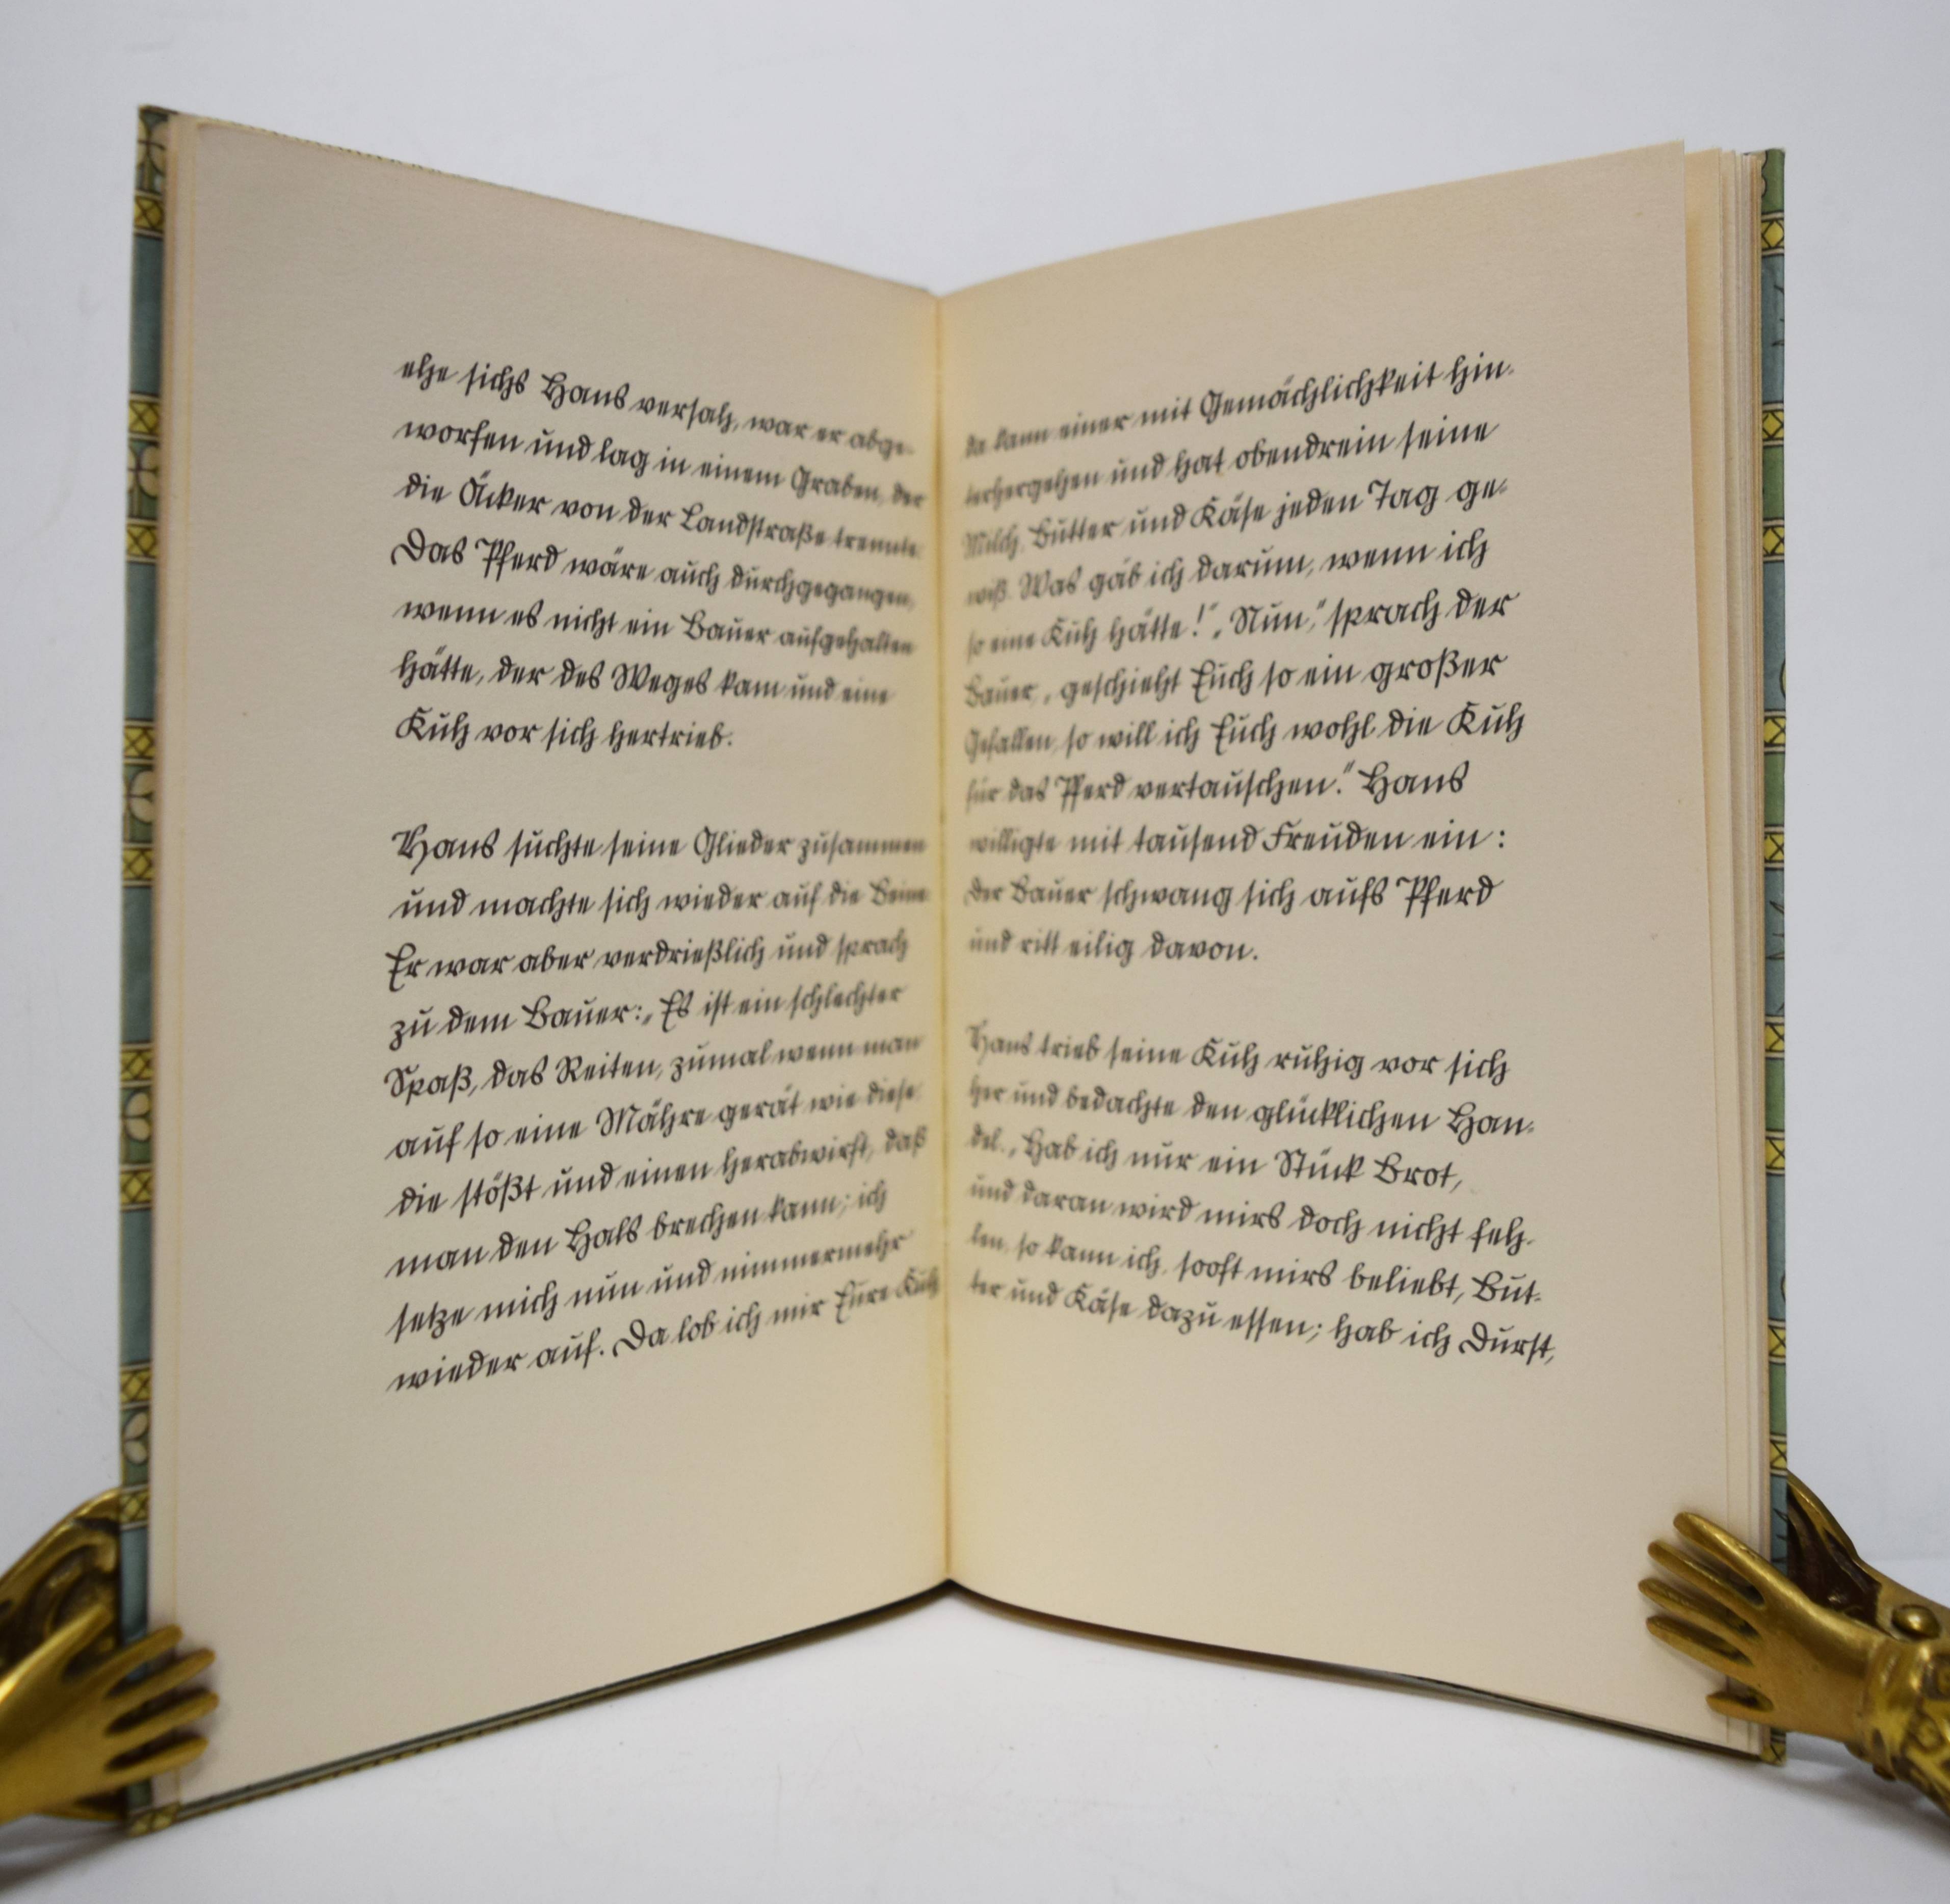 ehe sichs Hans versah, war er abge-
worfen und lag in einem Graben, der
die Äcker von der Landstraße trennte.
Das Pferd wäre auch durchgegangen,
wenn es nicht ein Bauer aufgehalten
hätte, der des Weges kam und eine
Kuh vor sich hertrieb.
Hans suchte seine Glieder zusammen
und machte sich wieder auf die Beine.
Er war aber verdrießlich und sprach
zu dem Bauer: „Es ist ein schlechter
Spaß, das Reiten, zumal wenn man
auf so eine Mähre gerät wie diese,
die stößt und einen herabwirft, daß
man den Hals brechen kann; ich
setze mich nun und nimmermehr
wieder auf. Da lob ich mir Eure Kuh,
da kann einer mit Gemächlichkeit hin-
terhergehen und hat obendrein seine
Milch, Butter und Käse jeden Tag ge-
wiß. Was gäb ich darum, wenn ich
so eine Kuh hätte!“ „Nun,“ sprach der
Bauer, „geschieht Euch so ein großer
Gefallen, so will ich Euch wohl die Kuh
für das Pferd vertauschen.“ Hans
willigte mit tausend Freuden ein:
der Bauer schwang sich aufs Pferd
und ritt eilig davon.
Hans trieb seine Kuh ruhig vor sich
her und bedachte den glücklichen Han-
del. „Hab ich nur ein Stück Brot,
und daran wird mirs doch nicht feh-
len, so kann ich, sooft mirs beliebt, But-
ter und Käse dazu essen; hab ich Durst,